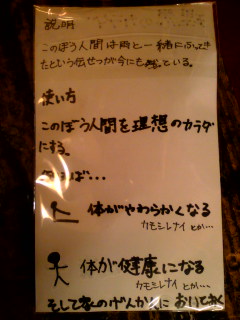 説明
このぼう人間は雨と一緒にふってき
たという伝せつが今にも残っている。
使い方
このぼう人間を理想のカラダ
にする。
たとえば・・・
体がやわらかくなる
カモシレナイ とか…
体が健康になる
カモシレナイ とか…
そして家のげんかんに おいておく